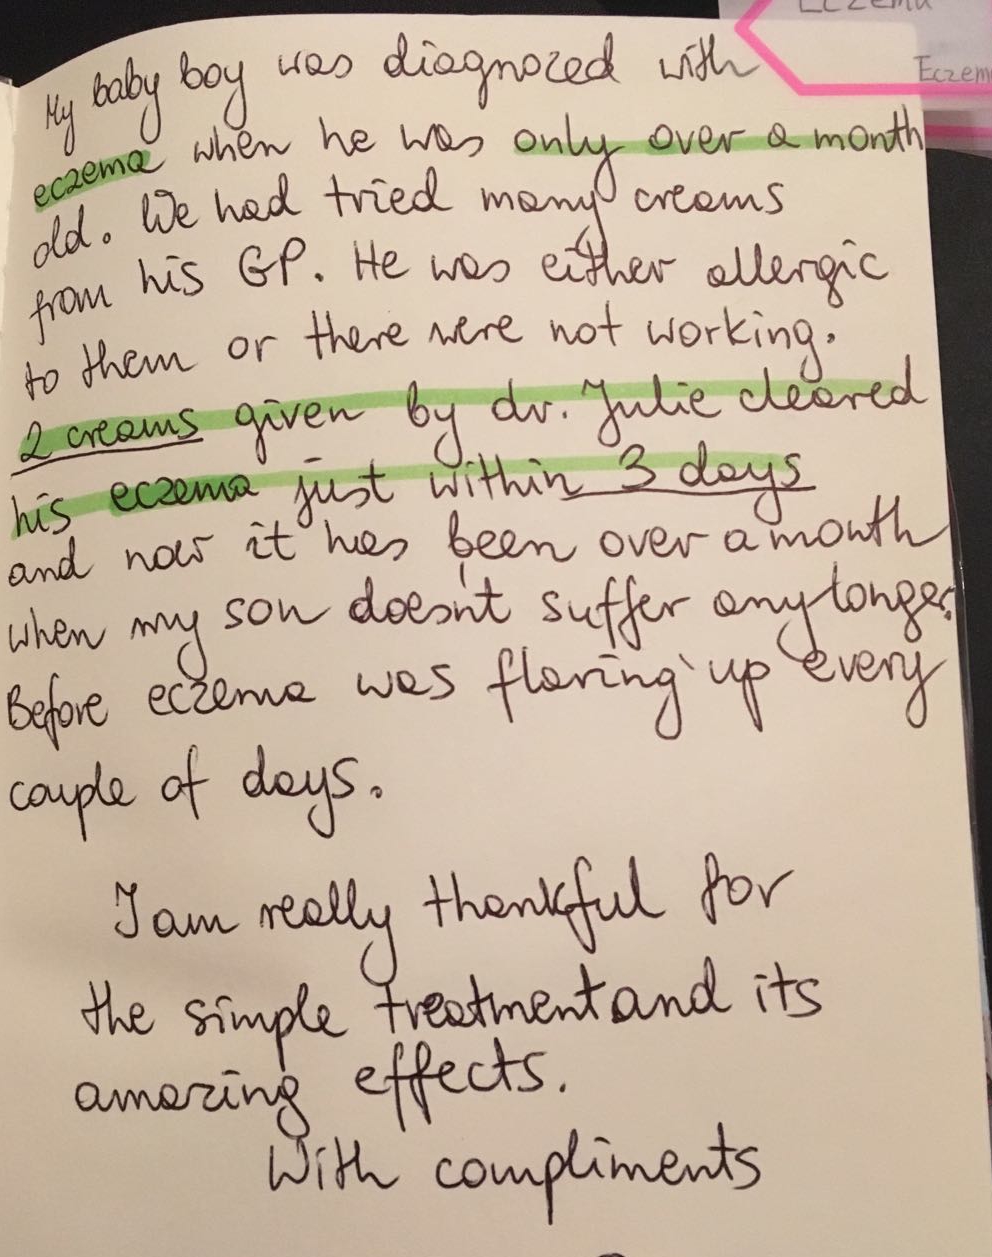 Eczema
Eczem
My baby boy was diagnozed with
eczema when he was only over a month
old. We had tried many creams
from his GP. He was either allergic
to them or there were not working.
2 creams given by dr. Julie cleared
his eczema just within 3 days
and now it has been over a month
when my son doesn't suffer any longer.
Before eczema was flaring up every
couple of days.
I am really thankful for
the simple treatment and its
amazing effects.
With compliments